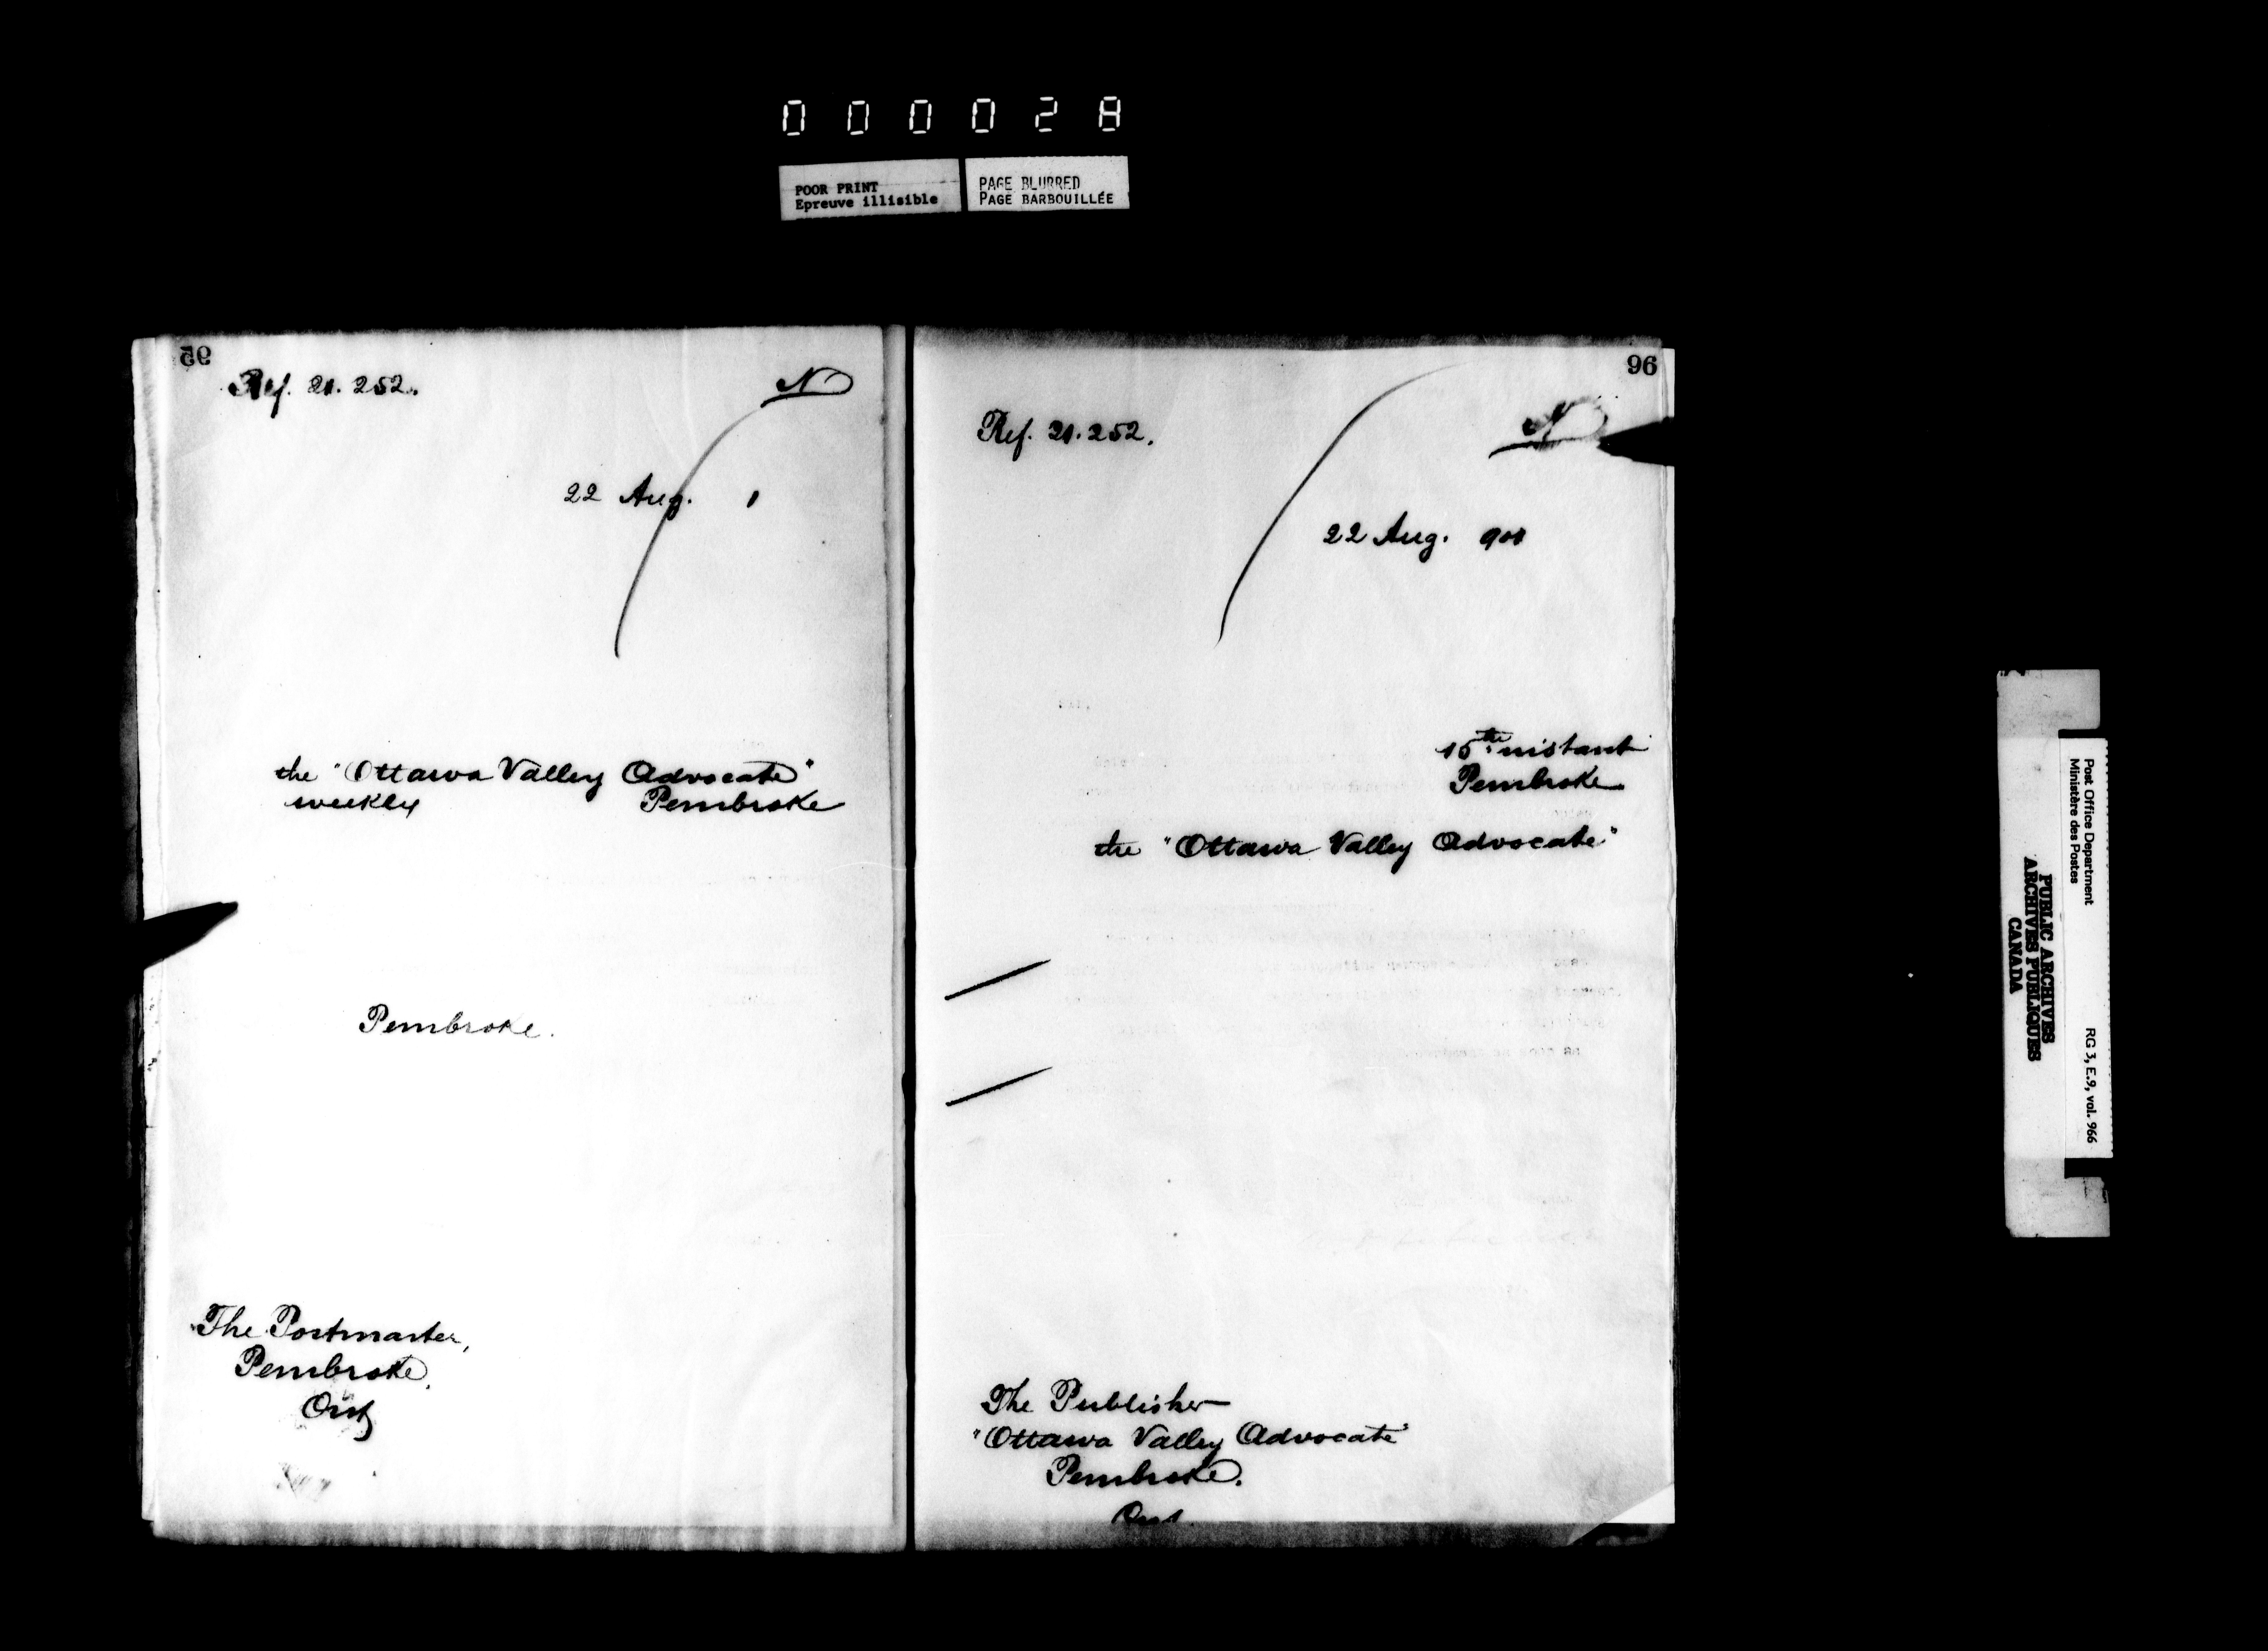 000028
POOR PRINT
Epreuve illisible
PAGE BLURRED
PAGE BARBOUILLÉE
95
Ref. 21.252.
N
22 Aug. 1
the "Ottawa Valley Advocate"
weekly Pembroke
Pembroke.
The Postmaster,
Pembroke,
Ont
96
Ref. 21.252.
N
22 Aug. 901
15th instant
Pembroke
the "Ottawa Valley Advocate"
The Publisher
"Ottawa Valley Advocate"
Pembroke.
Ont.
Post Office Department
Ministère des Postes
RG 3, E.9, vol. 966
PUBLIC ARCHIVES
ARCHIVES PUBLIQUES
CANADA